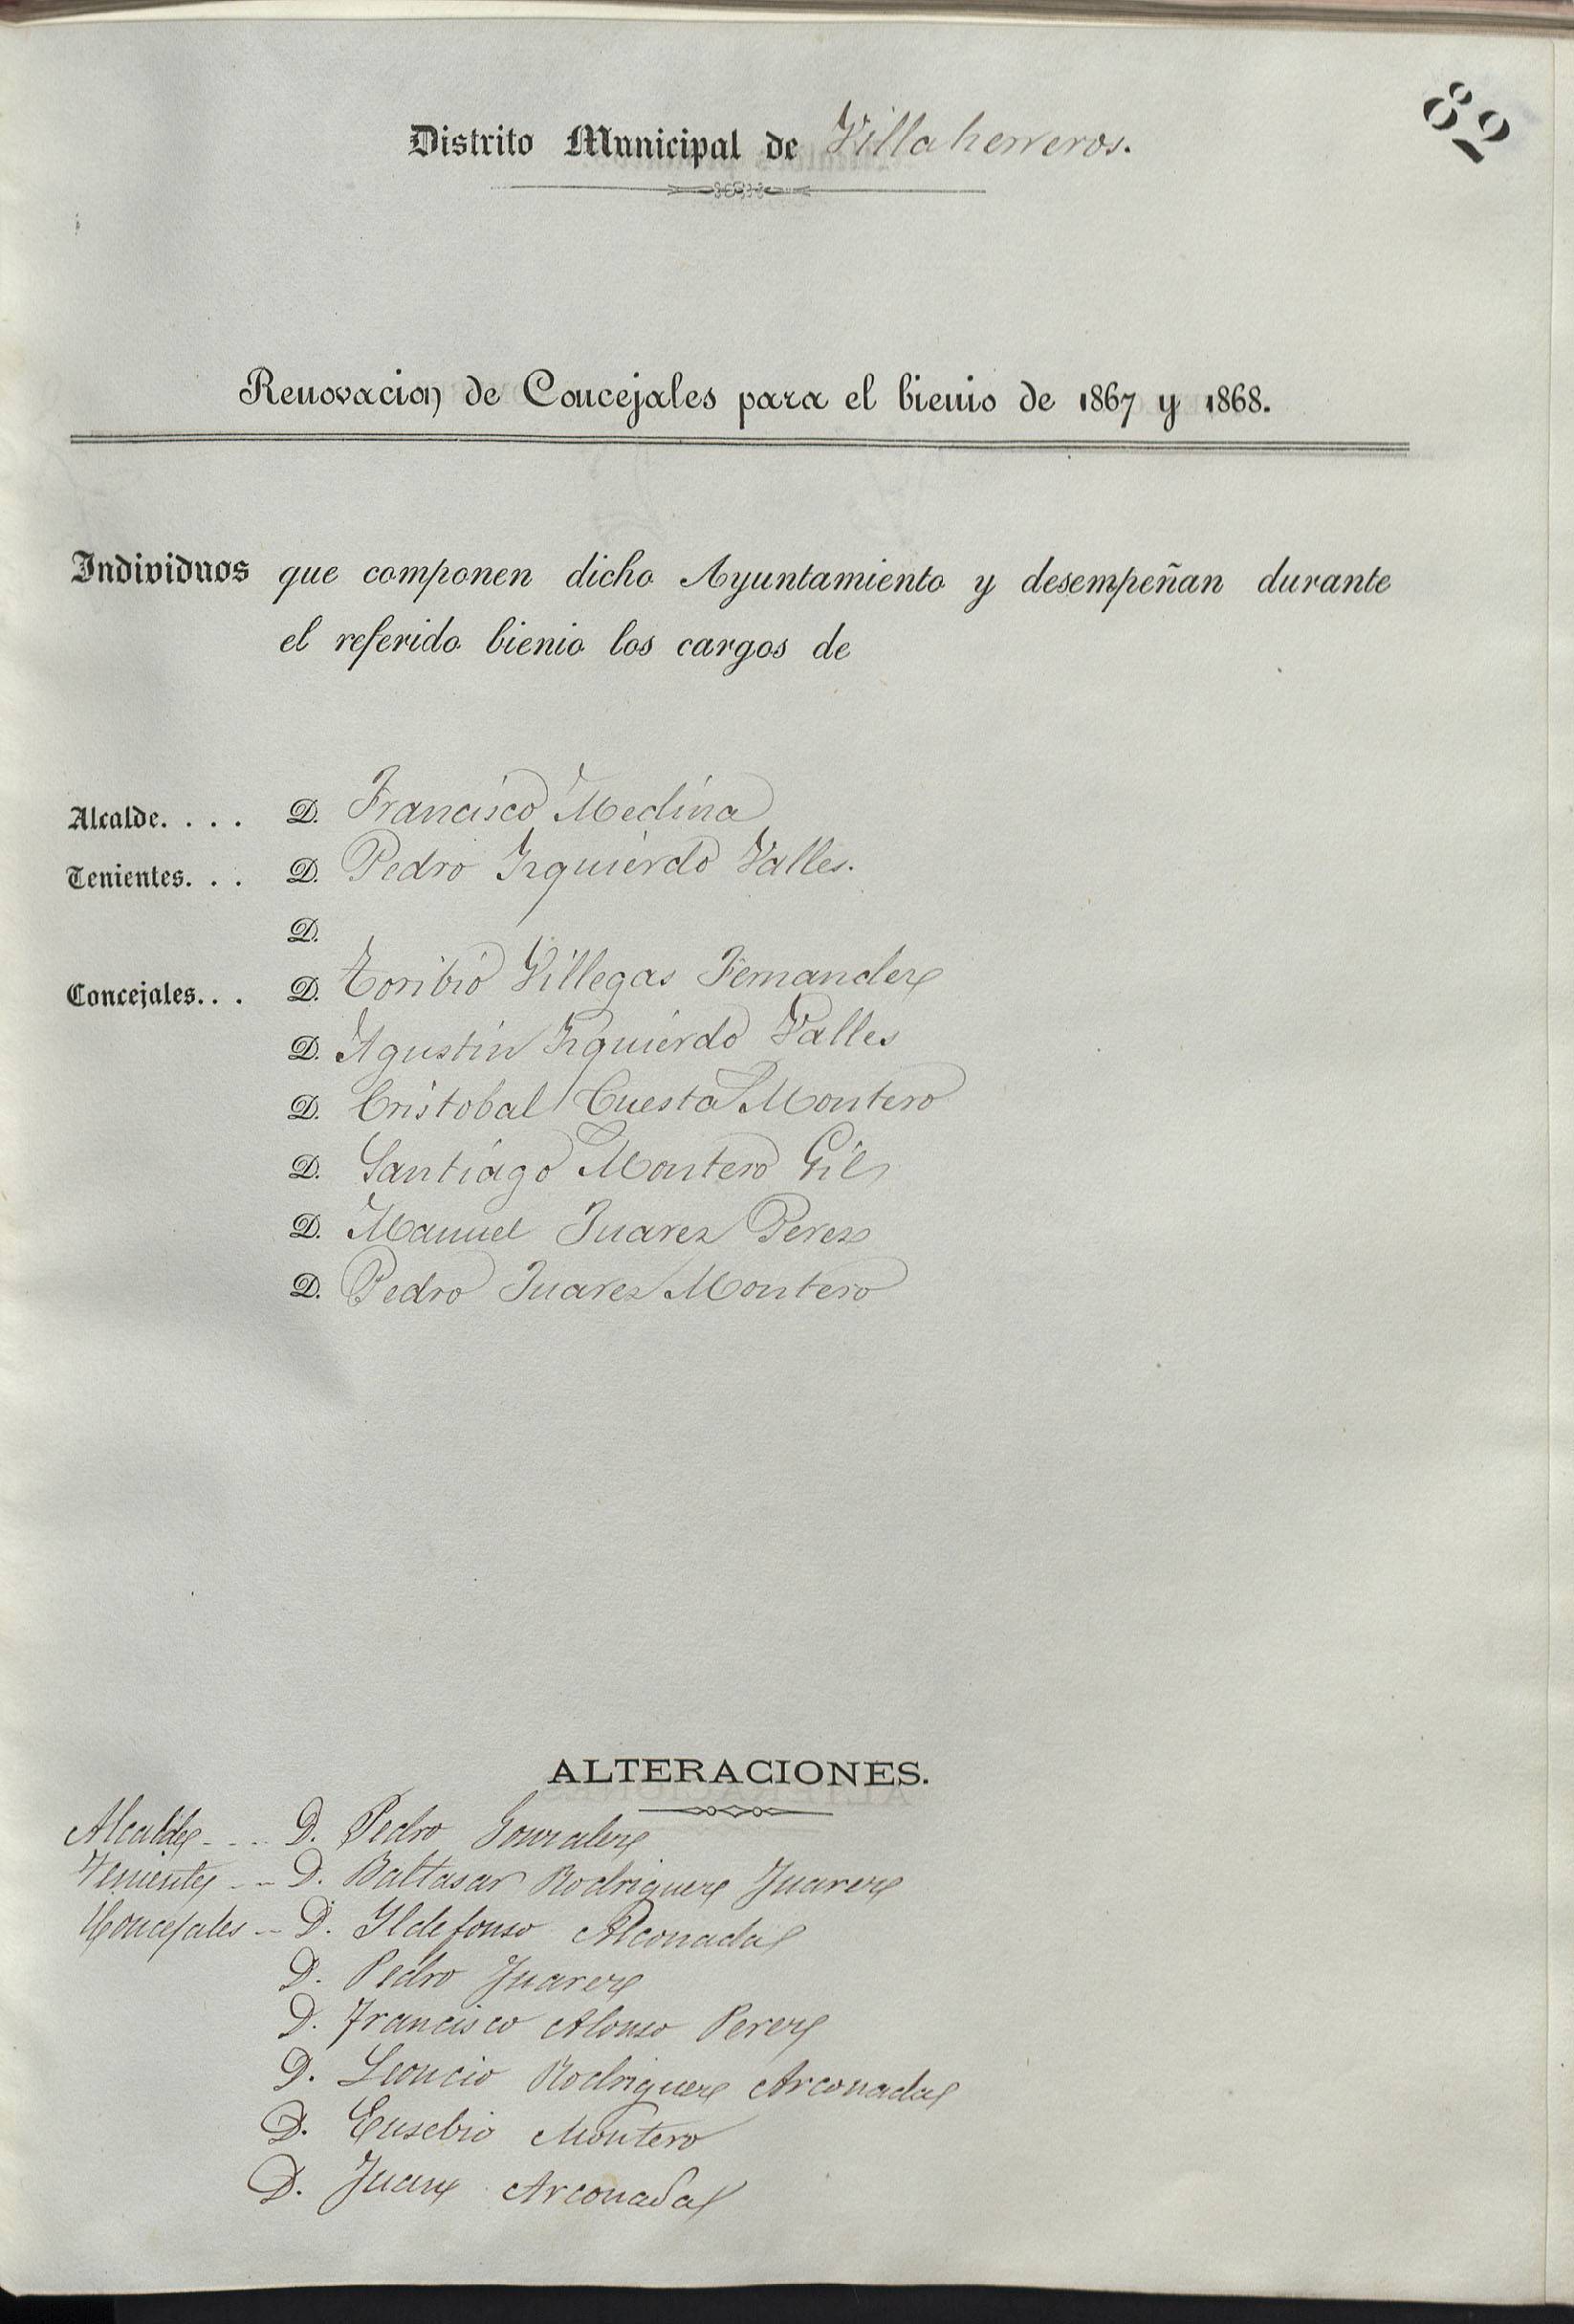 82
Distrito Municipal de Villaherreros.
Renovacion de Concejales para el bienio de 1867 y 1868.
Individuos que componen dicho Ayuntamiento y desempeñan durante
el referido bienio los cargos de
Alcalde. . . . D. Francisco Medina
Tenientes. . . D. Pedro Izquierdo Valles.
D.
Concejales. . . D. Toribio Villegas Fernandez
D. Agustin Izquierdo Valles
D. Cristobal Cuesta Montero
D. Santiago Montero Gil
D. Manuel Juarez Perez
D. Pedro Juarez Montero
ALTERACIONES.
Alcalde - - - D. Pedro Gonzalez
Teniente - - D. Baltasar Rodriguez Juarez
Concejales - - D. Ildefonso Arconada
D. Pedro Juarez
D. Francisco Alonso Perez
D. Leoncio Rodriguez Arconada
D. Eusebio Montero
D. Juan Arconada